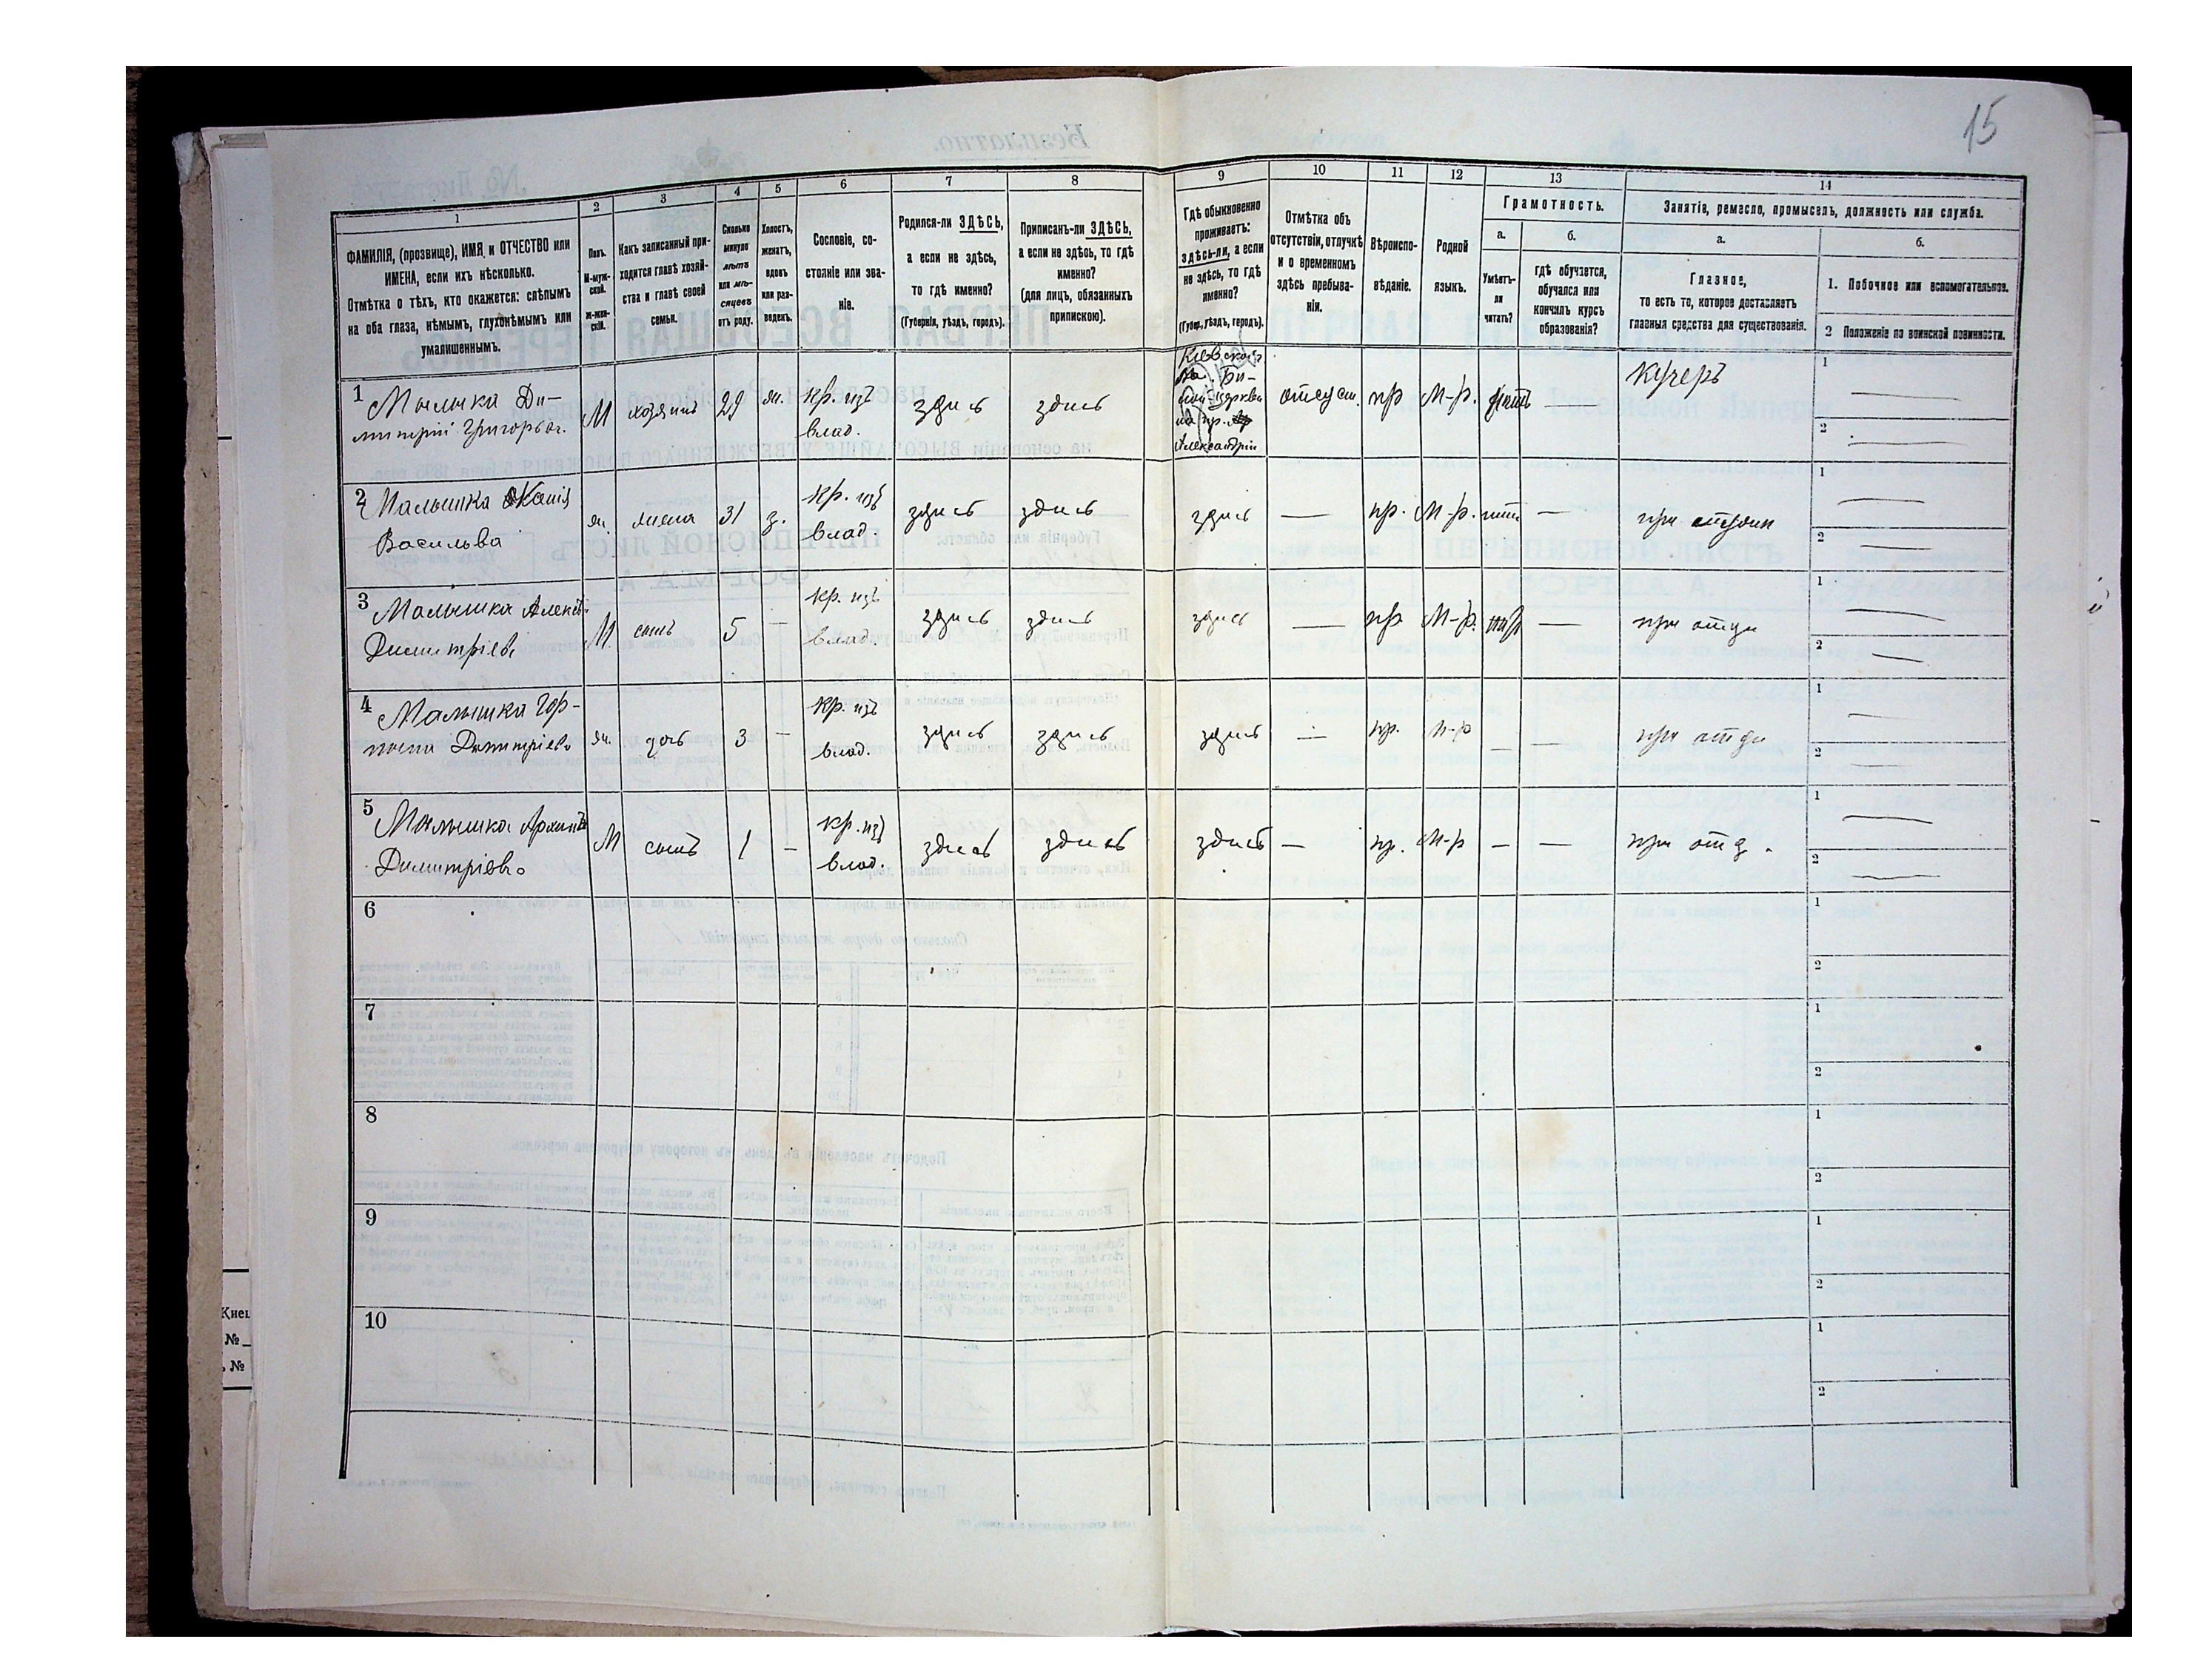 15
1
ФАМИЛІЯ, (прозвище), ИМЯ и ОТЧЕСТВО или
ИМЕНА, если ихъ нѣсколько.
Отмѣтка о тѣхъ, кто окажется: слѣпымъ
на оба глаза, нѣмымъ, глухонѣмымъ или
умалишеннымъ.
2
Полъ.
М-муж-
ской.
ж-жен-
скій.
3
Какъ записанный при-
ходится главѣ хозяй-
ства и главѣ своей
семьи.
4
Сколько
минуло
лѣтъ
или мѣ-
сяцевъ
отъ роду.
5
Холостъ,
женатъ,
вдовъ
или раз-
веденъ.
6
Сословіе, со-
стояніе или зва-
ніе.
7
Родился-ли ЗДѢСЬ,
а если не здѣсь,
то гдѣ именно?
(Губернія, уѣздъ, городъ).
8
Приписанъ-ли ЗДѢСЬ,
а если не здѣсь, то гдѣ
именно?
(для лицъ, обязанныхъ
припискою).
9
Гдѣ обыкновенно
проживаетъ:
здѣсь-ли, а если
не здѣсь, то гдѣ
именно?
(Губер., уѣздъ, городъ).
10
Отмѣтка объ
отсутствіи, отлучкѣ
и о временномъ
здѣсь пребыва-
ніи.
11
Вѣроиспо-
вѣданіе.
12
Родной
языкъ.
13
Грамотность.
а.
Умѣетъ-
ли
читать?
б.
гдѣ обучается,
обучался или
кончилъ курсъ
образованія?
14
Занятіе, ремесло, промыселъ, должность или служба.
а.
Главное,
то есть то, которое доставляетъ
главныя средства для существованія.
б.
1. Побочное или вспомогательное.
2 Положеніе по воинской повинности.
1
Малышка Ди-
митрій Григорьев.
М
хозяинъ
29
ж.
кр. изъ
влад.
здесь
здесь
Александрія
отсут.
пр
М-р.
нетъ
кучеръ
1
2
2
Малышка
Васильва
ж.
жена
31
з.
кр. изъ
влад.
здесь
здесь
здесь
—
пр.
М-р.
нетъ
—
1
2
3
Малышка Алексѣ
Димитріев
М.
сынъ
5
—
кр. изъ
влад.
здесь
здесь
здесь
—
пр
М-р.
нетъ
—
при отце
1
2
4
Малышка Гор-
пина Димитріево
ж.
дочь
3
—
кр. изъ
влад.
здесь
здесь
здесь
—
пр.
М-р
—
—
при отце
1
2
5
Малышка Архипъ
Димитріево
М
сынъ
1
—
кр. изъ
влад.
здесь
здесь
здесь
—
пр.
М-р
—
—
при отц.
1
2
6
1
2
7
1
2
8
1
2
9
1
2
10
1
2
№
№